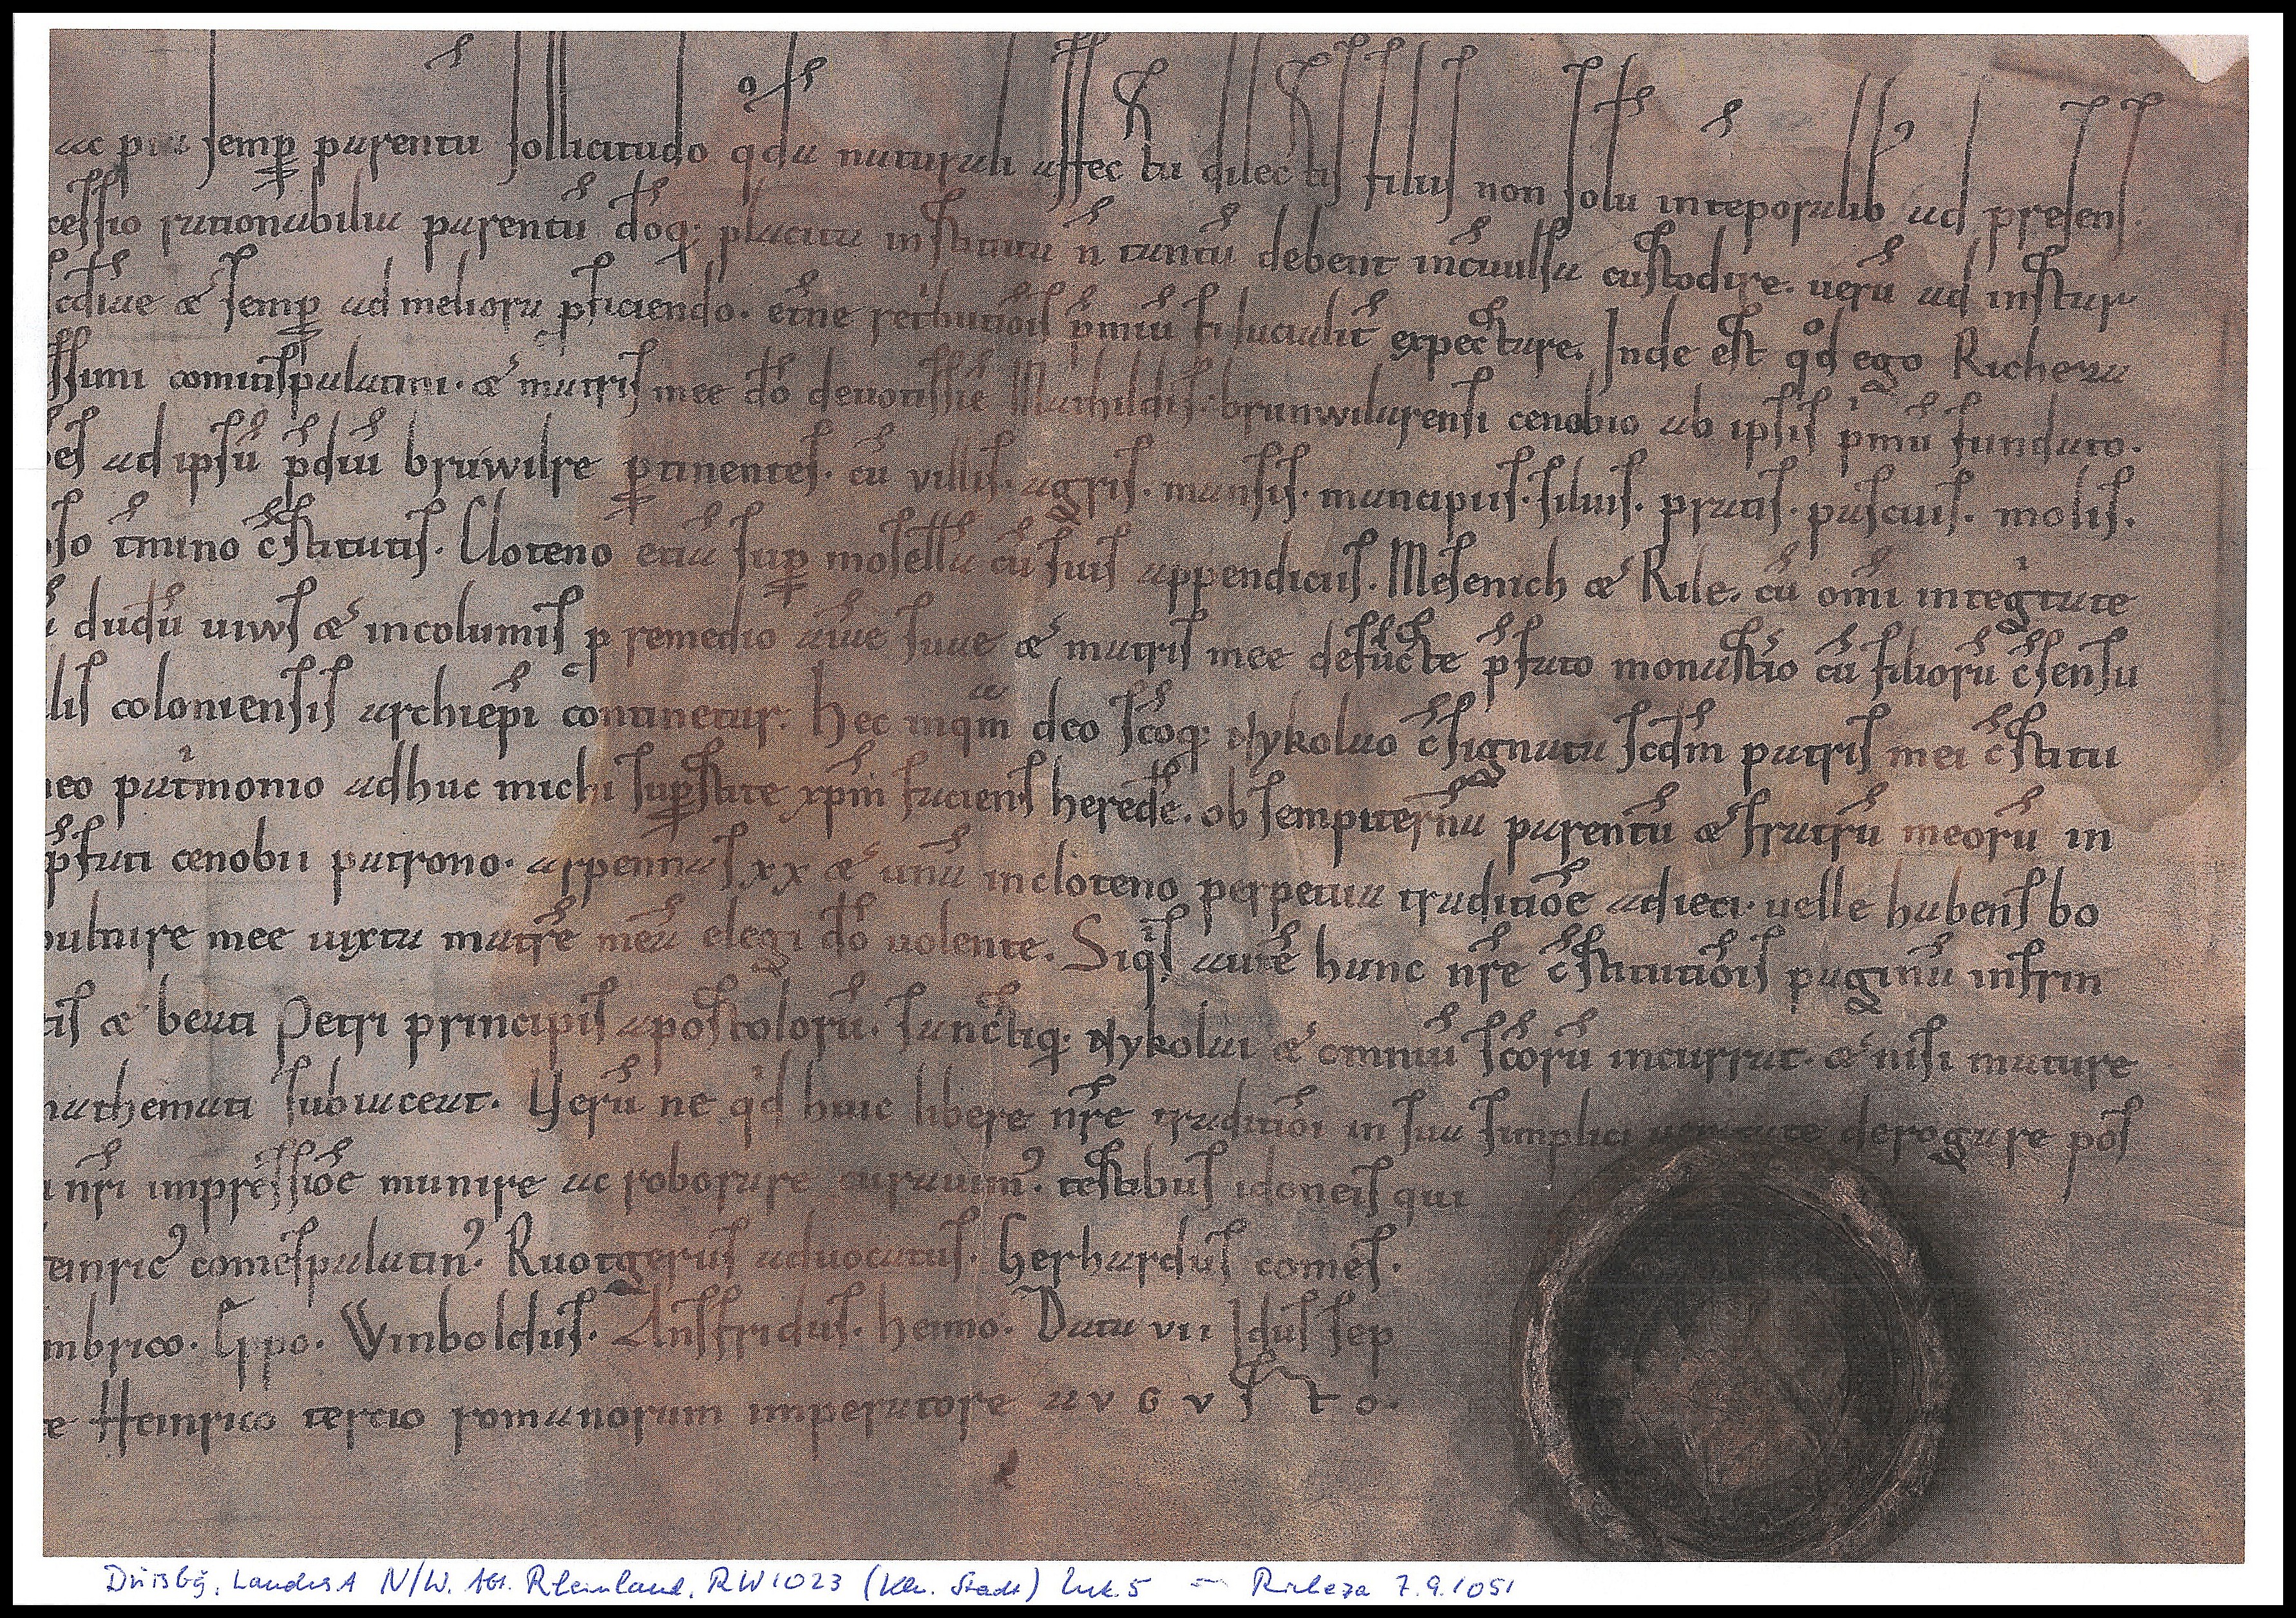 ac pia semp parentu sollicitudo qda naturali affectu dilectis filiis non solu inteporalib ad presens.
cessio rationabiliu parentu doq; placita instituta n tantu debent incuulsa custodire. ueru ad instar
ediue & semp ad meliora pficiendo. etne retbutiois pmiu fiducialit expectare. Inde est qd ego Richeza
ssimi comitispalatini. & matris mee do deuotissie Mathildis. brunwilarensi cenobio ab ipsis pmu fundato.
es ad ipsu pdiu bruwilre ptinentes. cu villis. agris. mansis. mancipiis. siluis. pratis. pascuis. molis.
so tmino cstitutis. Cloteno etia sup mosella cu suis appendiciis. Mesenich & Rile. cu omi integtate
dudu uiws & incolumis p remedio aiae suae & matris mee defucte pfato monastio cu filioru csensu
lis coloniensis archiepi continetur. Hec inqm deo scoq; Nykolao csignata scdm patris mei cstitu
eo patmonio adhuc michi supstite xpm faciens herede. ob sempiterna parentu & fratru meoru in
pfati cenobii patrono. arpennas xx & unu incloteno perpetua traditioe adieci. uelle habens bo
pulture mee iuxta matre mea elegi do uolente. Siqs aute hanc nre cstitutiois pagina infrin
tis & beati Petri principis apostoloru. sanctiq; Nykolai & omniu scoru incurrat. & nisi mature
nathemati subiaceat. Veru ne qd huic libere nre traditioi in sua simplici ueritate derogare pos
nri impressioe munire ac roborare curauim9. testibus idoneis qui
einric9 comespalatin9. Ruotgerus aduocatus. Gerhardus comes.
mbrico. Eppo. Winboldus. Ansfridus. Heimo. Data vii Idus sep
e Heinrico tercio romanorum imperatore avgvsto.
Duisbg, LandesA N/W. Abt. Rheinland, RW 1023 (Kln. Stadt) Urk. 5 — Richeza 7.9.1051